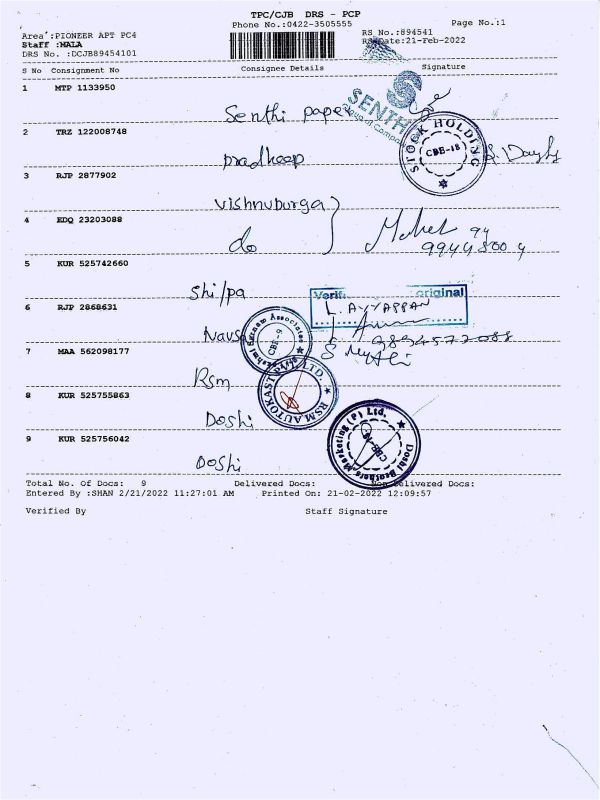 TPC/CJB DRS - PCP
Phone No.:0422-3505555
Page No.:1
Area :PIONEER APT PC4
RS No.:894541
Staff :MALA
RS Date:21-Feb-2022
DRS No. :DCJB89454101
S No Consignment No Consignee Details Signature
1 MTP 1133950
Senthi paper
SENTH
2 TRZ 122008748
STOCK HOLDING
CBE-18
pradheep
3 RJP 2877902
vishnuburga
4 EDQ 23203088
do
9944800 4
5 KUR 525742660
Shilpa
Verifi original
L. AYYAPPAN
6 RJP 2868631
9894577088
Associates
CBE-9
7 MAA 562098177
Rsm
RSM AUTOKAST (P) LTD
8 KUR 525755863
Doshi
Doshi Brothers Marketing (P) Ltd.
9 KUR 525756042
Doshi
Total No. Of Docs: 9 Delivered Docs: Non Delivered Docs:
Entered By :SHAN 2/21/2022 11:27:01 AM Printed On: 21-02-2022 12:09:57
Verified By Staff Signature